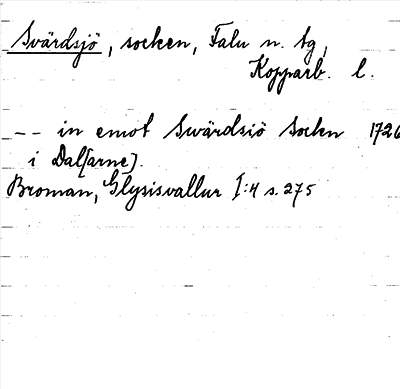 Svärdsjö, socken, Falu n. tg,
Kopparb. l.
-- in emot Swärdsiö Socken 1726
i Dal[arne].
Broman, Glysisvallur I:4 s. 275